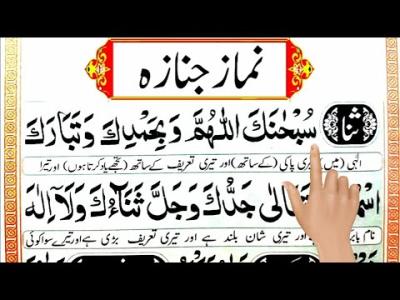 نماز جنازہ
ثنا سُبْحٰنَكَ اللّٰهُمَّ وَبِحَمْدِكَ وَتَبَارَكَ
الٰہی (میں) تیری پاکی (کے ساتھ) اور تیری تعریف کے ساتھ (تجھے یاد کرتا ہوں) اور تیرا
تَعَالٰى جَدُّكَ وَجَلَّ ثَنَاءُكَ وَلَآ اِلٰهَ
نام بابر اور تیری شان بلند ہے اور تیری تعریف بڑی ہے اور تیرے سوا کوئی